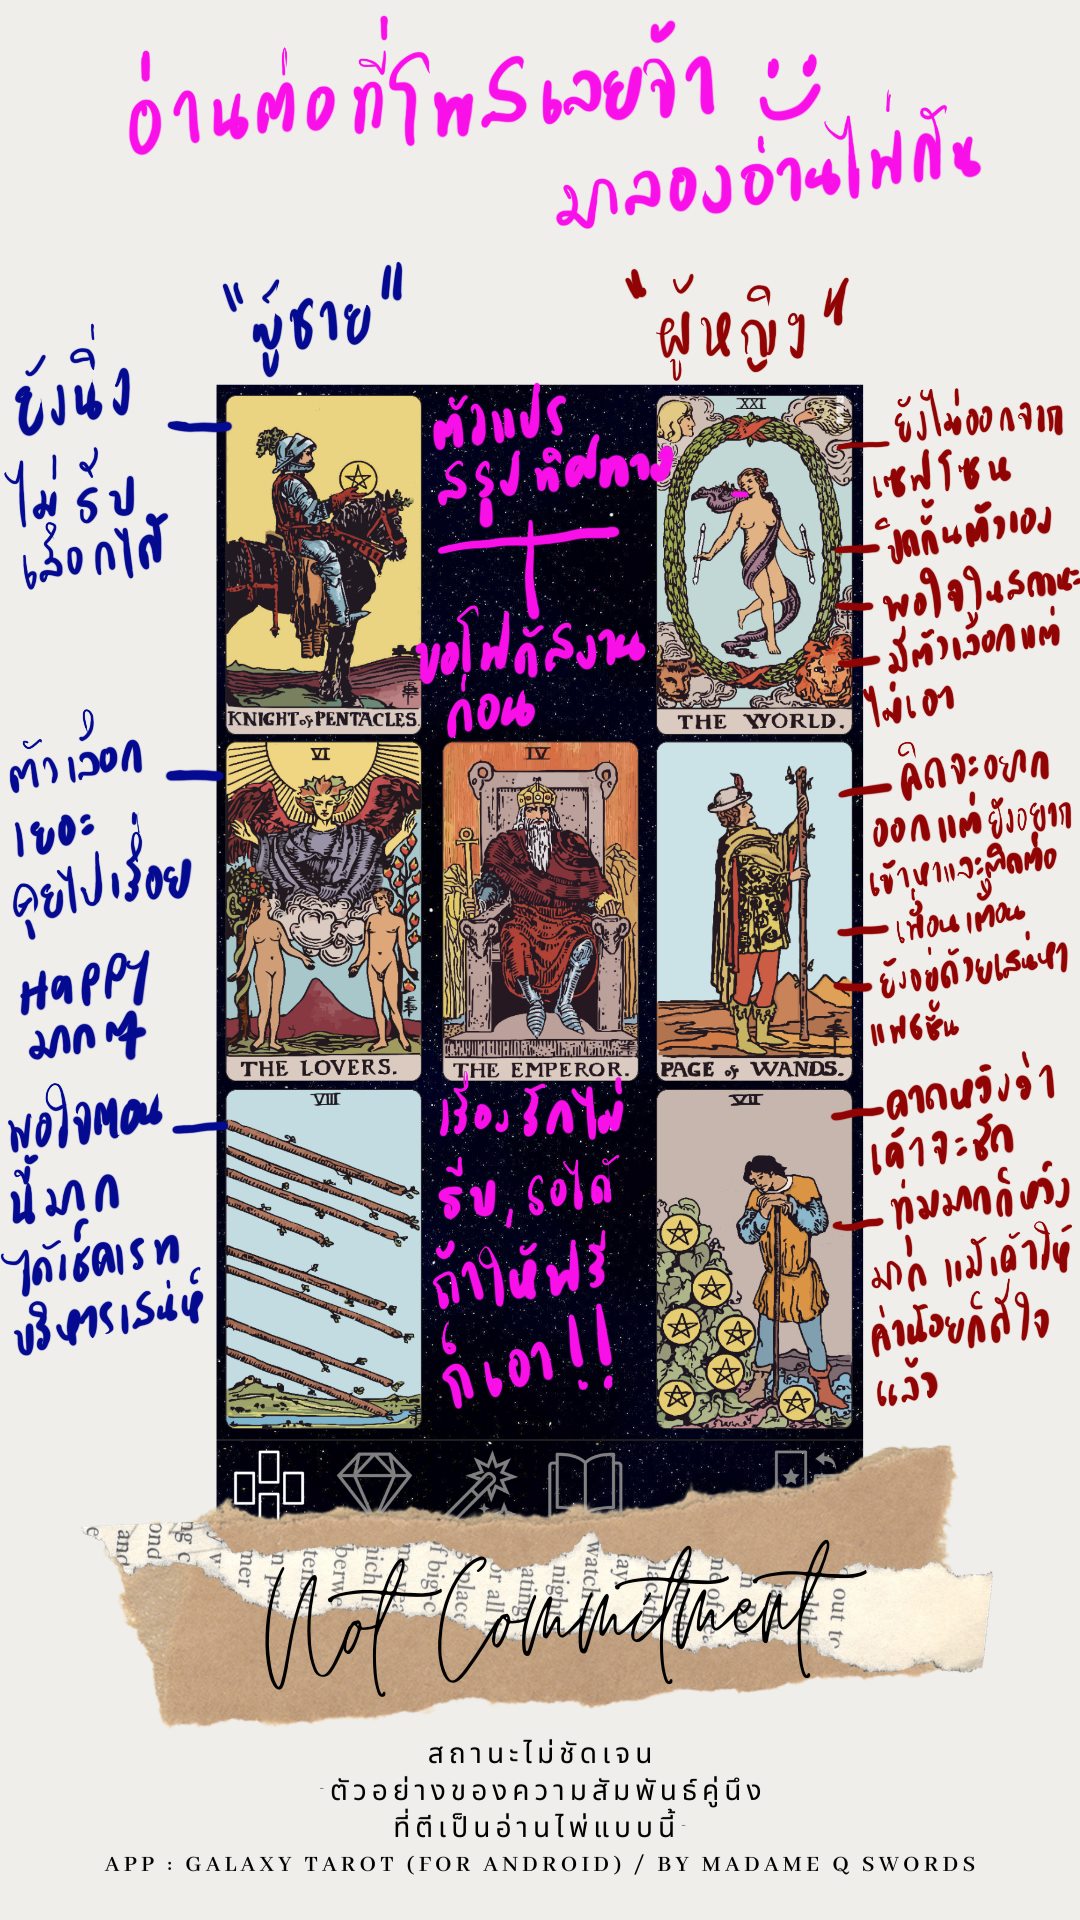 อ่านต่อที่โพสเลยจ้า
มาลองอ่านไพ่กัน
"ผู้ชาย"
"ผู้หญิง"
ยังนิ่ง
ไม่รีบ
เลือกได้
ตัวแปร
สรุปทิศทาง
ขอโฟกัสงาน
ก่อน
XXI
ยังไม่ออกจาก
เซฟโซน
ปิดกั้นตัวเอง
พอใจในสถานะ
มีตัวเลือกแต่
ไม่เอา
KNIGHT of PENTACLES
THE WORLD.
ตัวเลือก
เยอะ
คุยไปเรื่อย
HAPPY
มากๆ
VI
THE LOVERS.
IV
THE EMPEROR.
PAGE of WANDS.
คิดจะอยาก
ออกแต่ยังอยาก
เข้าหาและติดต่อ
เพื่อนเตือน
ยังอยู่ด้วยเสน่หา
แฟชชั่น
พอใจตอน
นี้มาก
ได้เช็คเรท
บริหารเสน่ห์
VIII
เรื่องรักไม่
รีบ, รอได้
ถ้าให้ฟรี
ก็เอา!!
VII
คาดหวังว่า
เค้าจะรัก
ทุ่มมากก็หวัง
มาก แม้เค้าให้
ค่าน้อยก็ดีใจ
แล้ว
Not Commitment
สถานะไม่ชัดเจน
ตัวอย่างของความสัมพันธ์คู่นึง
ที่ตีเป็นอ่านไพ่แบบนี้
APP : GALAXY TAROT (FOR ANDROID) / BY MADAME Q SWORDS